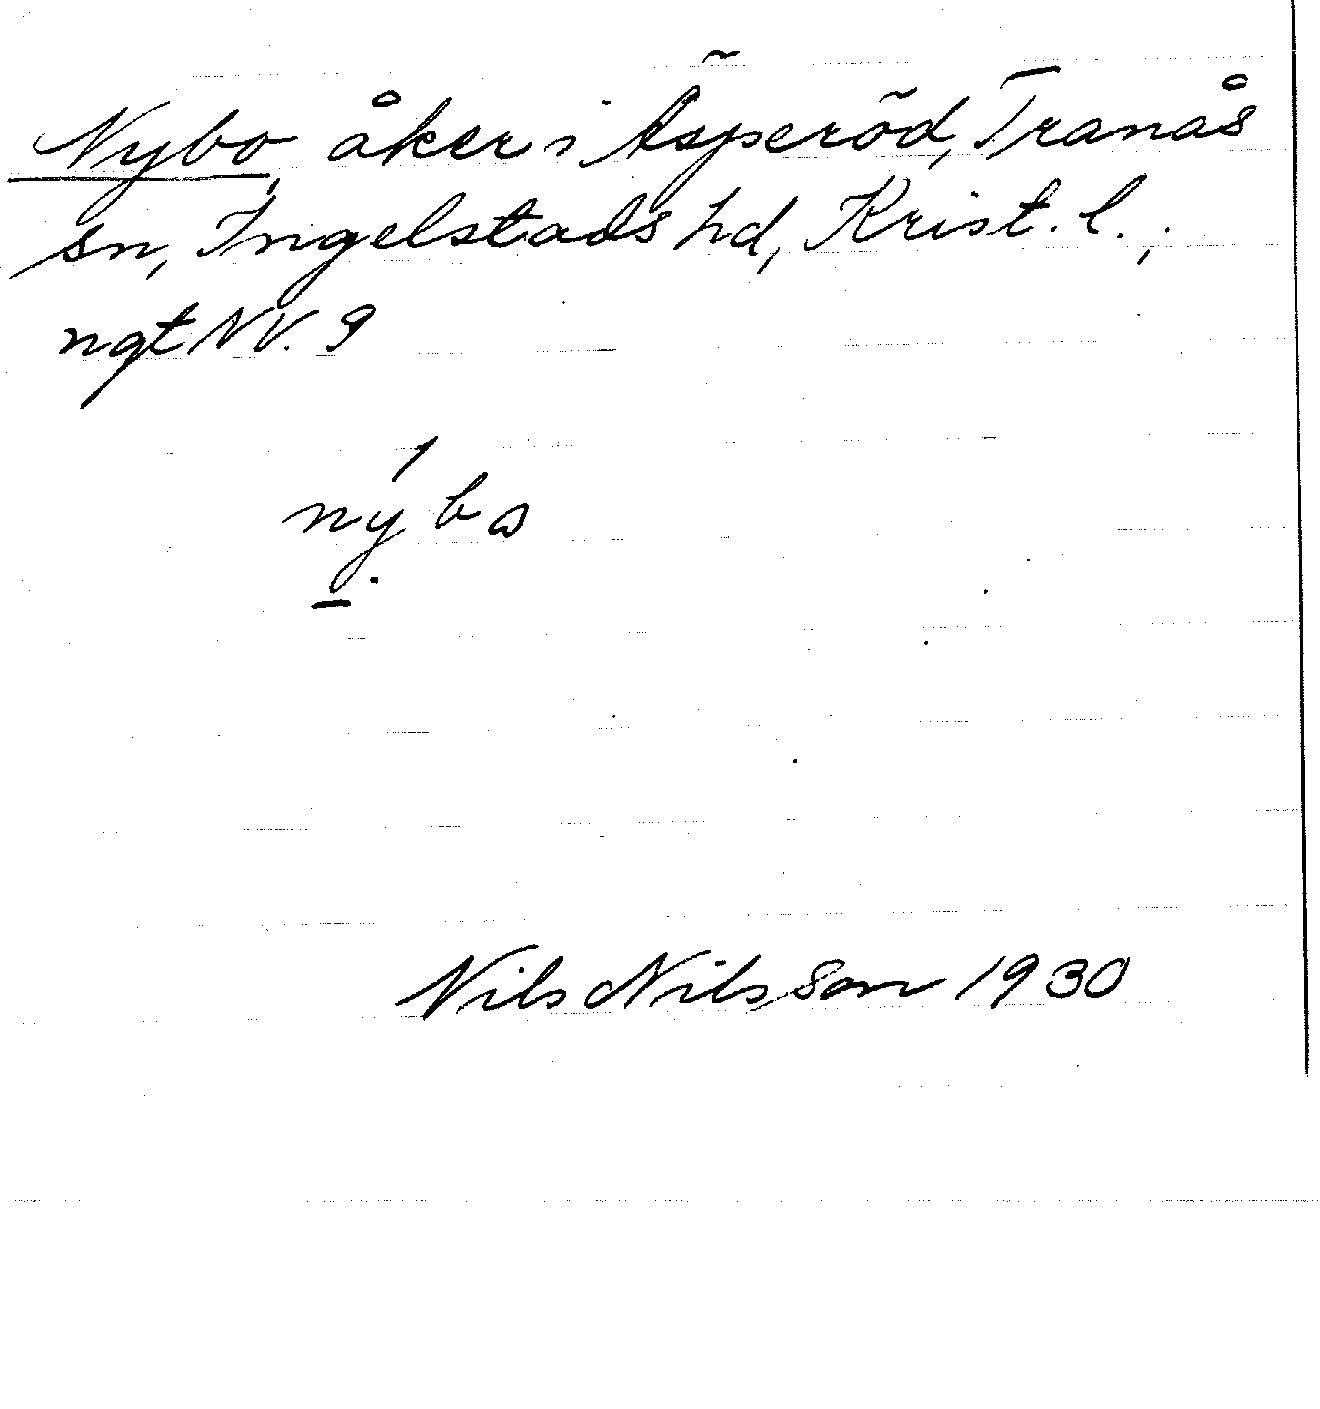 Nybo, åker i Äsperöd, Tranås
sn, Ingelstads hd, Krist. l.,
ngt NV. 9
nybo
Nils Nilsson 1930